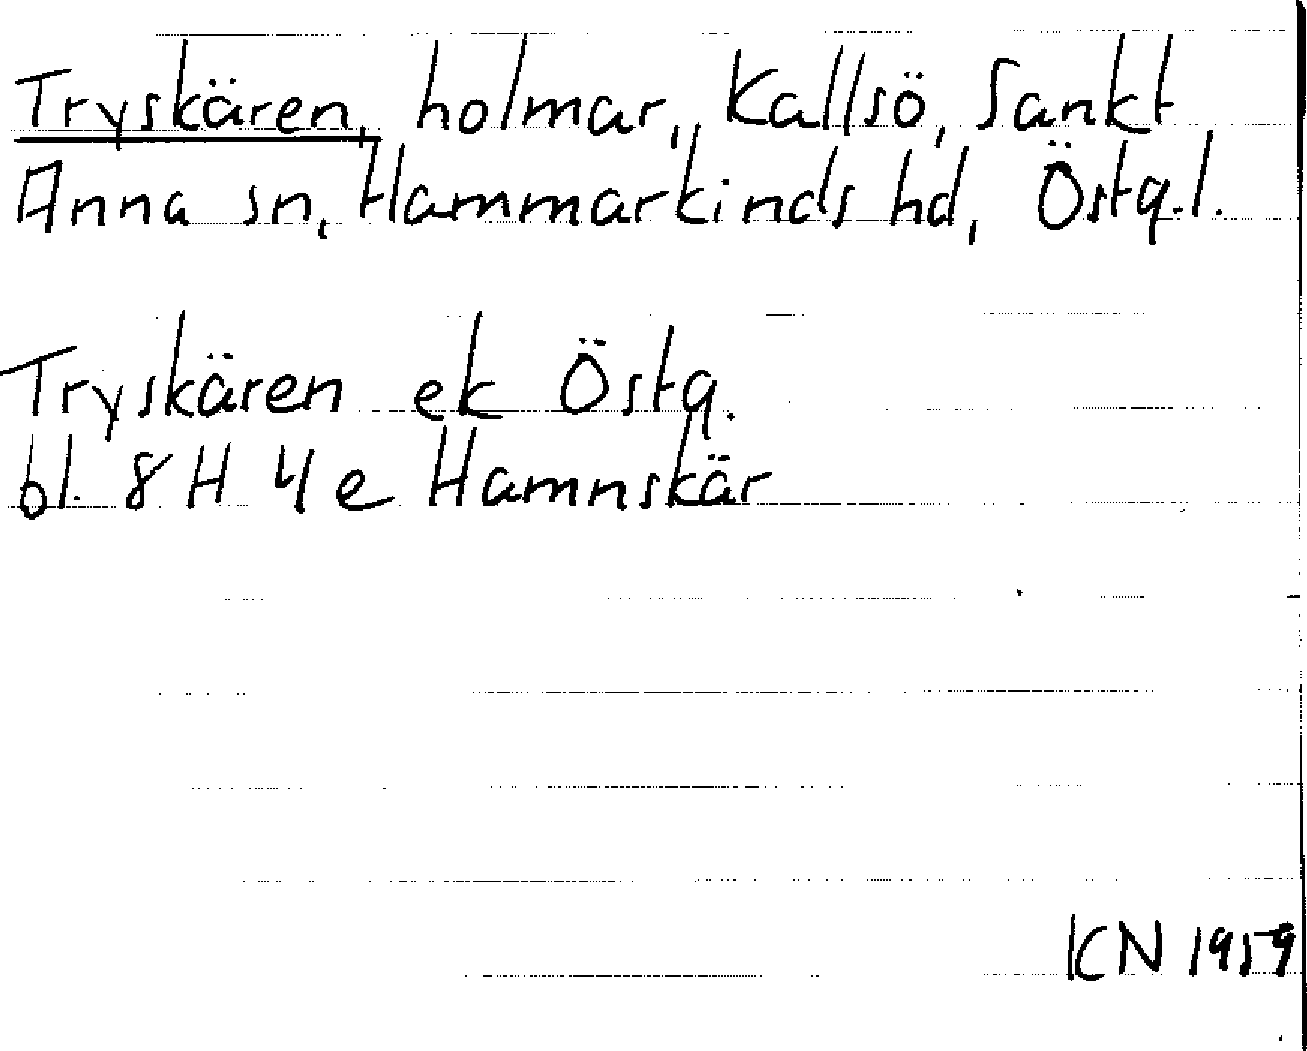 Tryskären, holmar, Kallsö, Sankt
Anna sn, Hammarkinds hd, Östg.l.
Tryskären ek Östg.
bl. 8 H 4 e Hamnskär
KN 1959